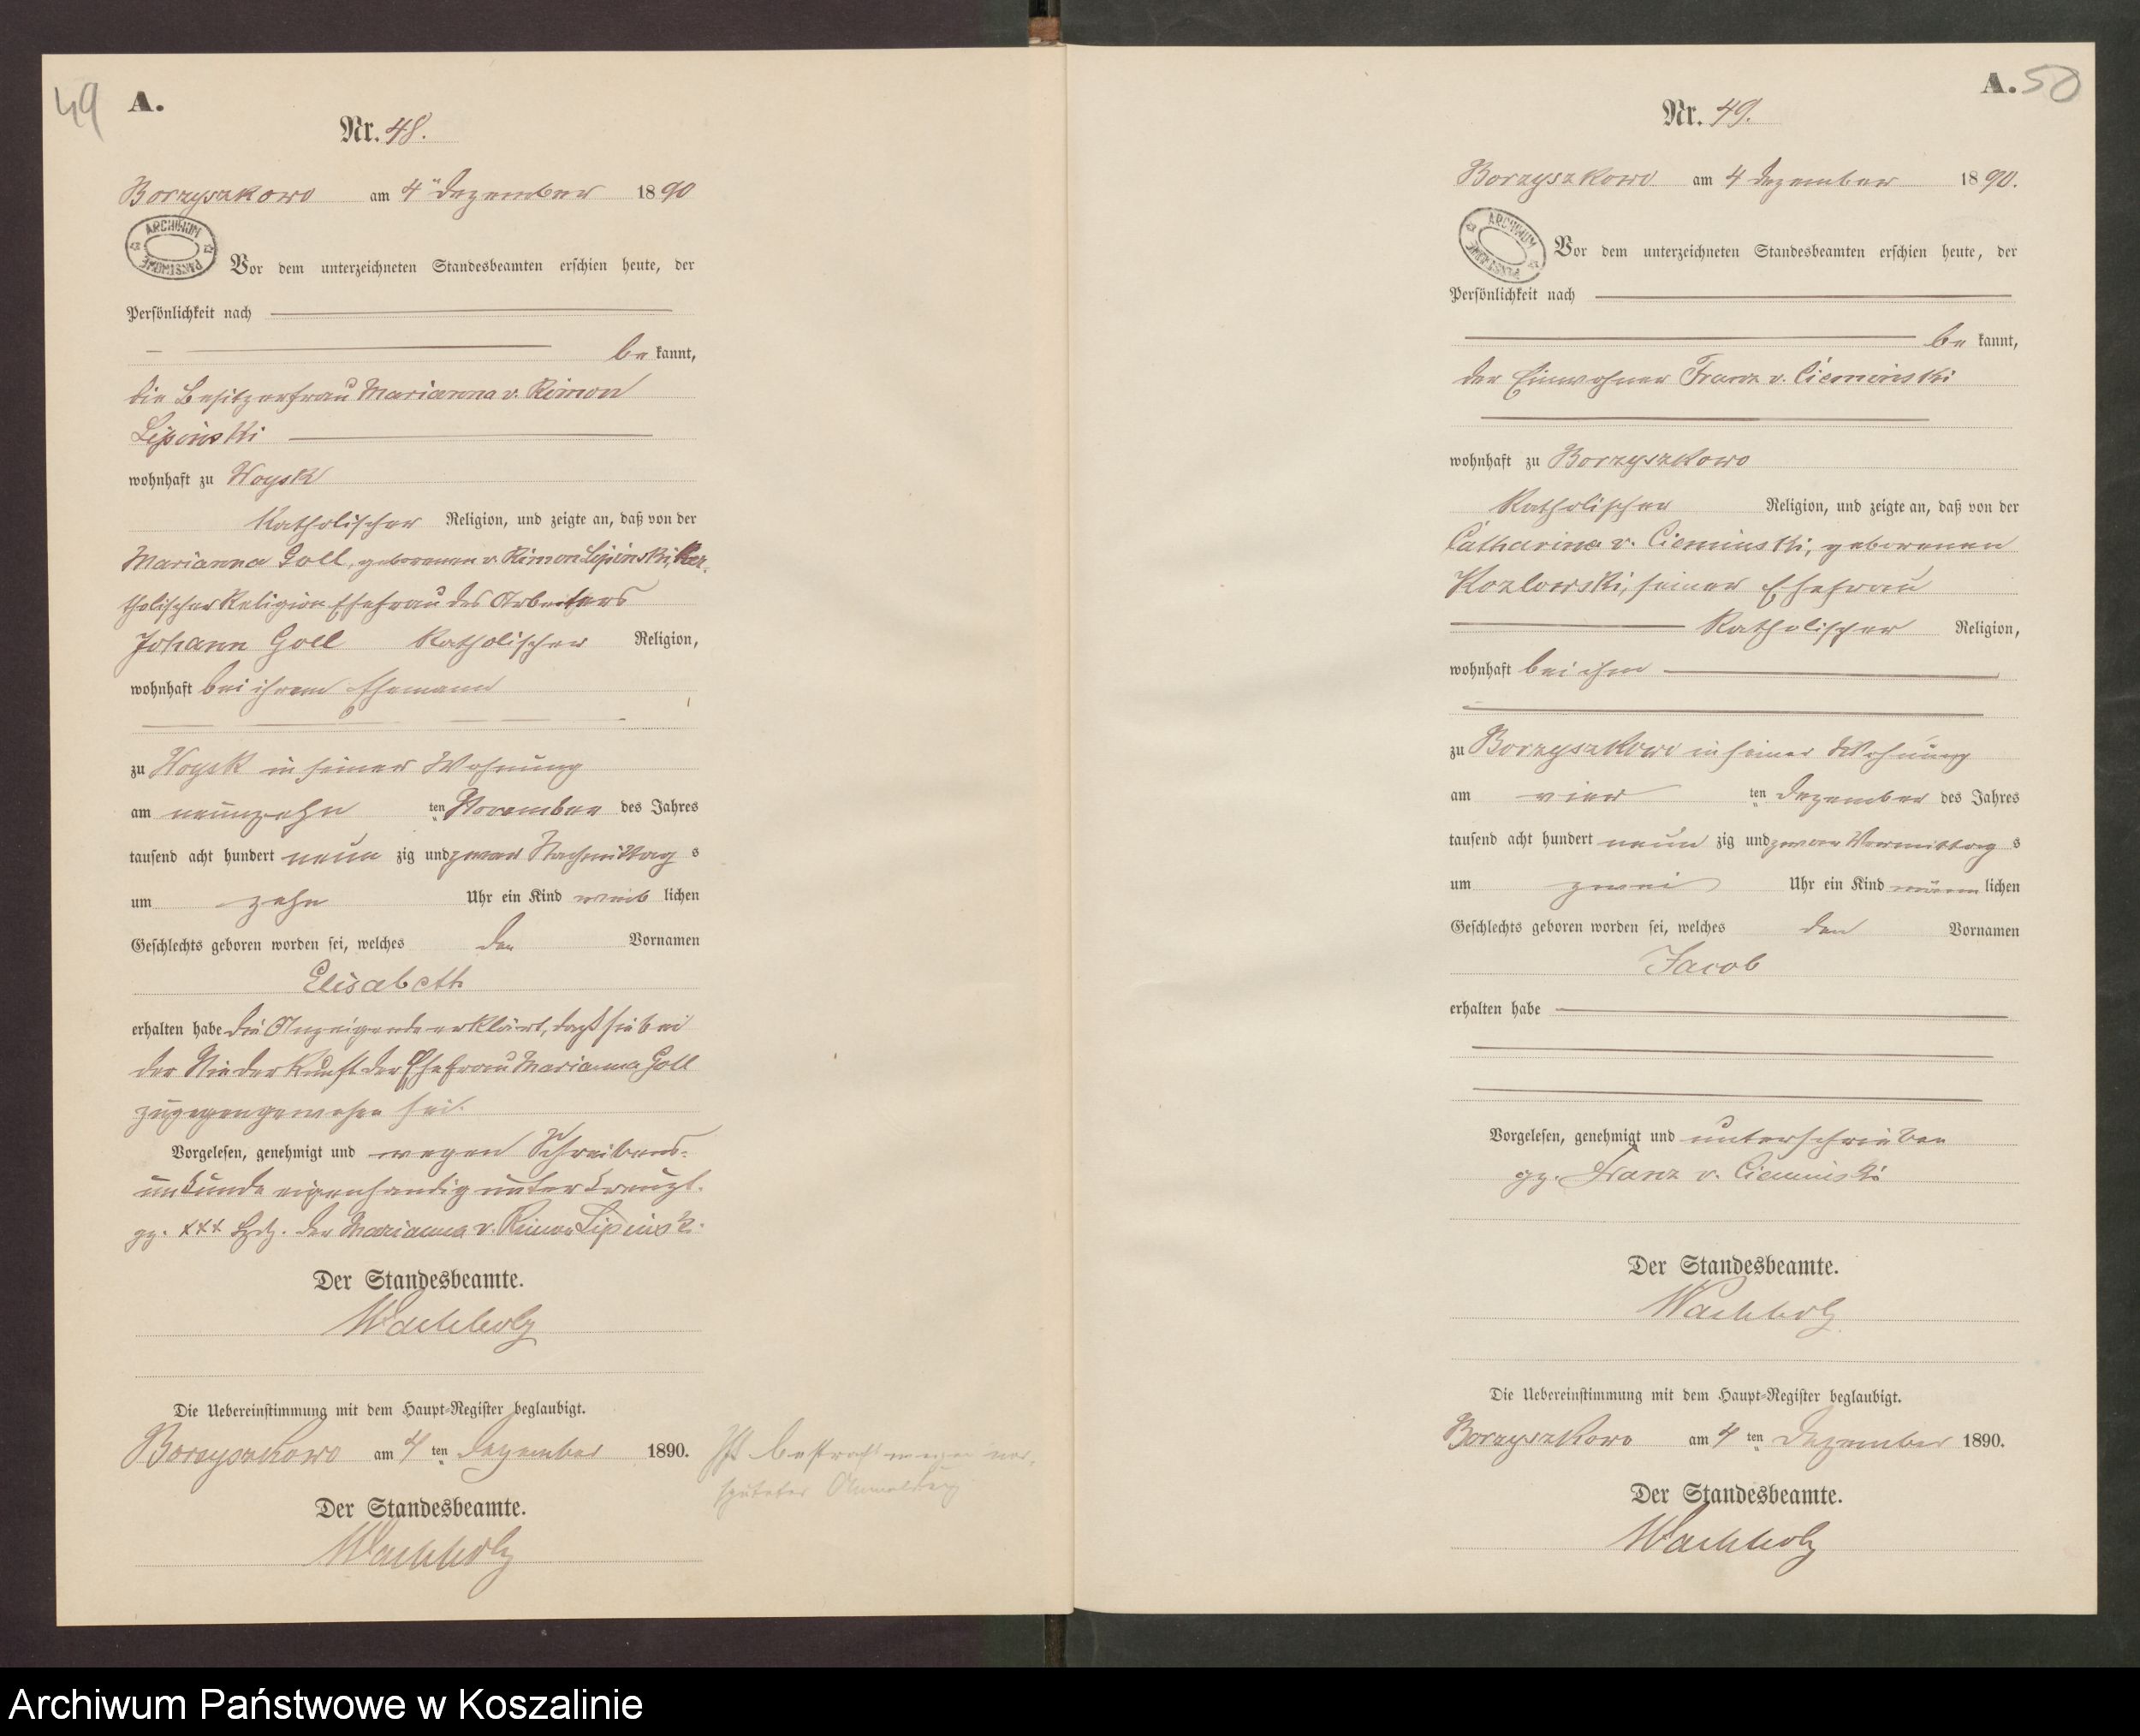 49
A.
Nr. 48.
Borzyszkowo am 4ten Dezember 1890
ARCHIWUM PAŃSTWOWE
Vor dem unterzeichneten Standesbeamten erschien heute, der
Persönlichkeit nach
be kannt,
die Besitzerfrau Marianna v. Rimon
Lipinski
wohnhaft zu Woysk
Katholischer Religion, und zeigte an, daß von der
Marianna Goll, geborenen v. Rimon Lipinski, ka-
tholischer Religion Ehefrau des Arbeiters
Johann Goll Katholischer Religion,
wohnhaft bei ihrem Ehemann
zu Woysk in seiner Wohnung
am neunzehn ten November des Jahres
tausend acht hundert neun zig und zwar Nachmittag s
um zehn Uhr ein Kind weib lichen
Geschlechts geboren worden sei, welches den Vornamen
Elisabeth
erhalten habe die Anzeigende erklärt, daß sie bei
der Niederkunft der Ehefrau Marianna Goll
zugegen gewesen sei.
Vorgelesen, genehmigt und wegen Schreibens-
unkunde eigenhändig unterkreuzt.
gz. +++ Hdz. der Marianna v. Rimon Lipinski.
Der Standesbeamte.
Wachholz
Die Uebereinstimmung mit dem Haupt-Register beglaubigt.
Borzyszkowo am 4 ten Dezember 1890.
Der Standesbeamte.
Wachholz
Ist bestraft wegen ver-
späteter Anmeldung
A. 50
Nr. 49.
Borzyszkowo am 4 Dezember 1890.
ARCHIWUM PAŃSTWOWE
Vor dem unterzeichneten Standesbeamten erschien heute, der
Persönlichkeit nach
be kannt,
der Einwohner Franz v. Cieminski
wohnhaft zu Borzyszkowo
Katholischer Religion, und zeigte an, daß von der
Catharina v. Cieminski, geborenen
Kozlowski, seiner Ehefrau
Katholischer Religion,
wohnhaft bei ihm
zu Borzyszkowo in seiner Wohnung
am vier ten Dezember des Jahres
tausend acht hundert neun zig und zwar Vormittag s
um zwei Uhr ein Kind männ lichen
Geschlechts geboren worden sei, welches den Vornamen
Jacob
erhalten habe
Vorgelesen, genehmigt und unterschrieben
gz. Franz v. Cieminski
Der Standesbeamte.
Wachholz
Die Uebereinstimmung mit dem Haupt-Register beglaubigt.
Borzyszkowo am 4 ten Dezember 1890.
Der Standesbeamte.
Wachholz
Archiwum Państwowe w Koszalinie